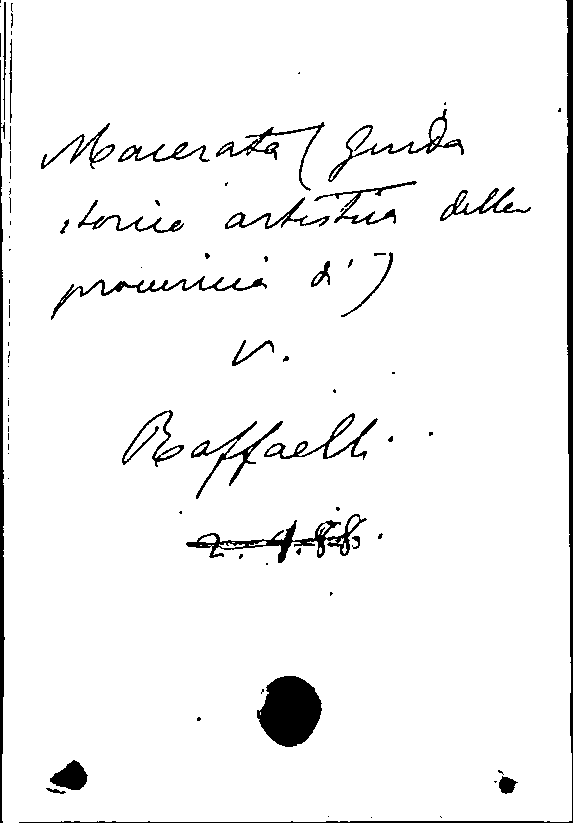 Macerata (Guida
storico artistica della
provincia di)
V.
Raffaelli.
2. 4.88.